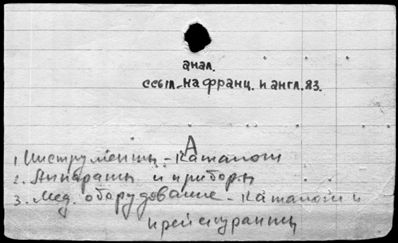 анал.
ссыл-на франц. и англ. яз.
А
1. Инструменты - Каталоги
2. Аппараты и приборы
3. Мед. оборудование - Каталоги и
прейскуранты